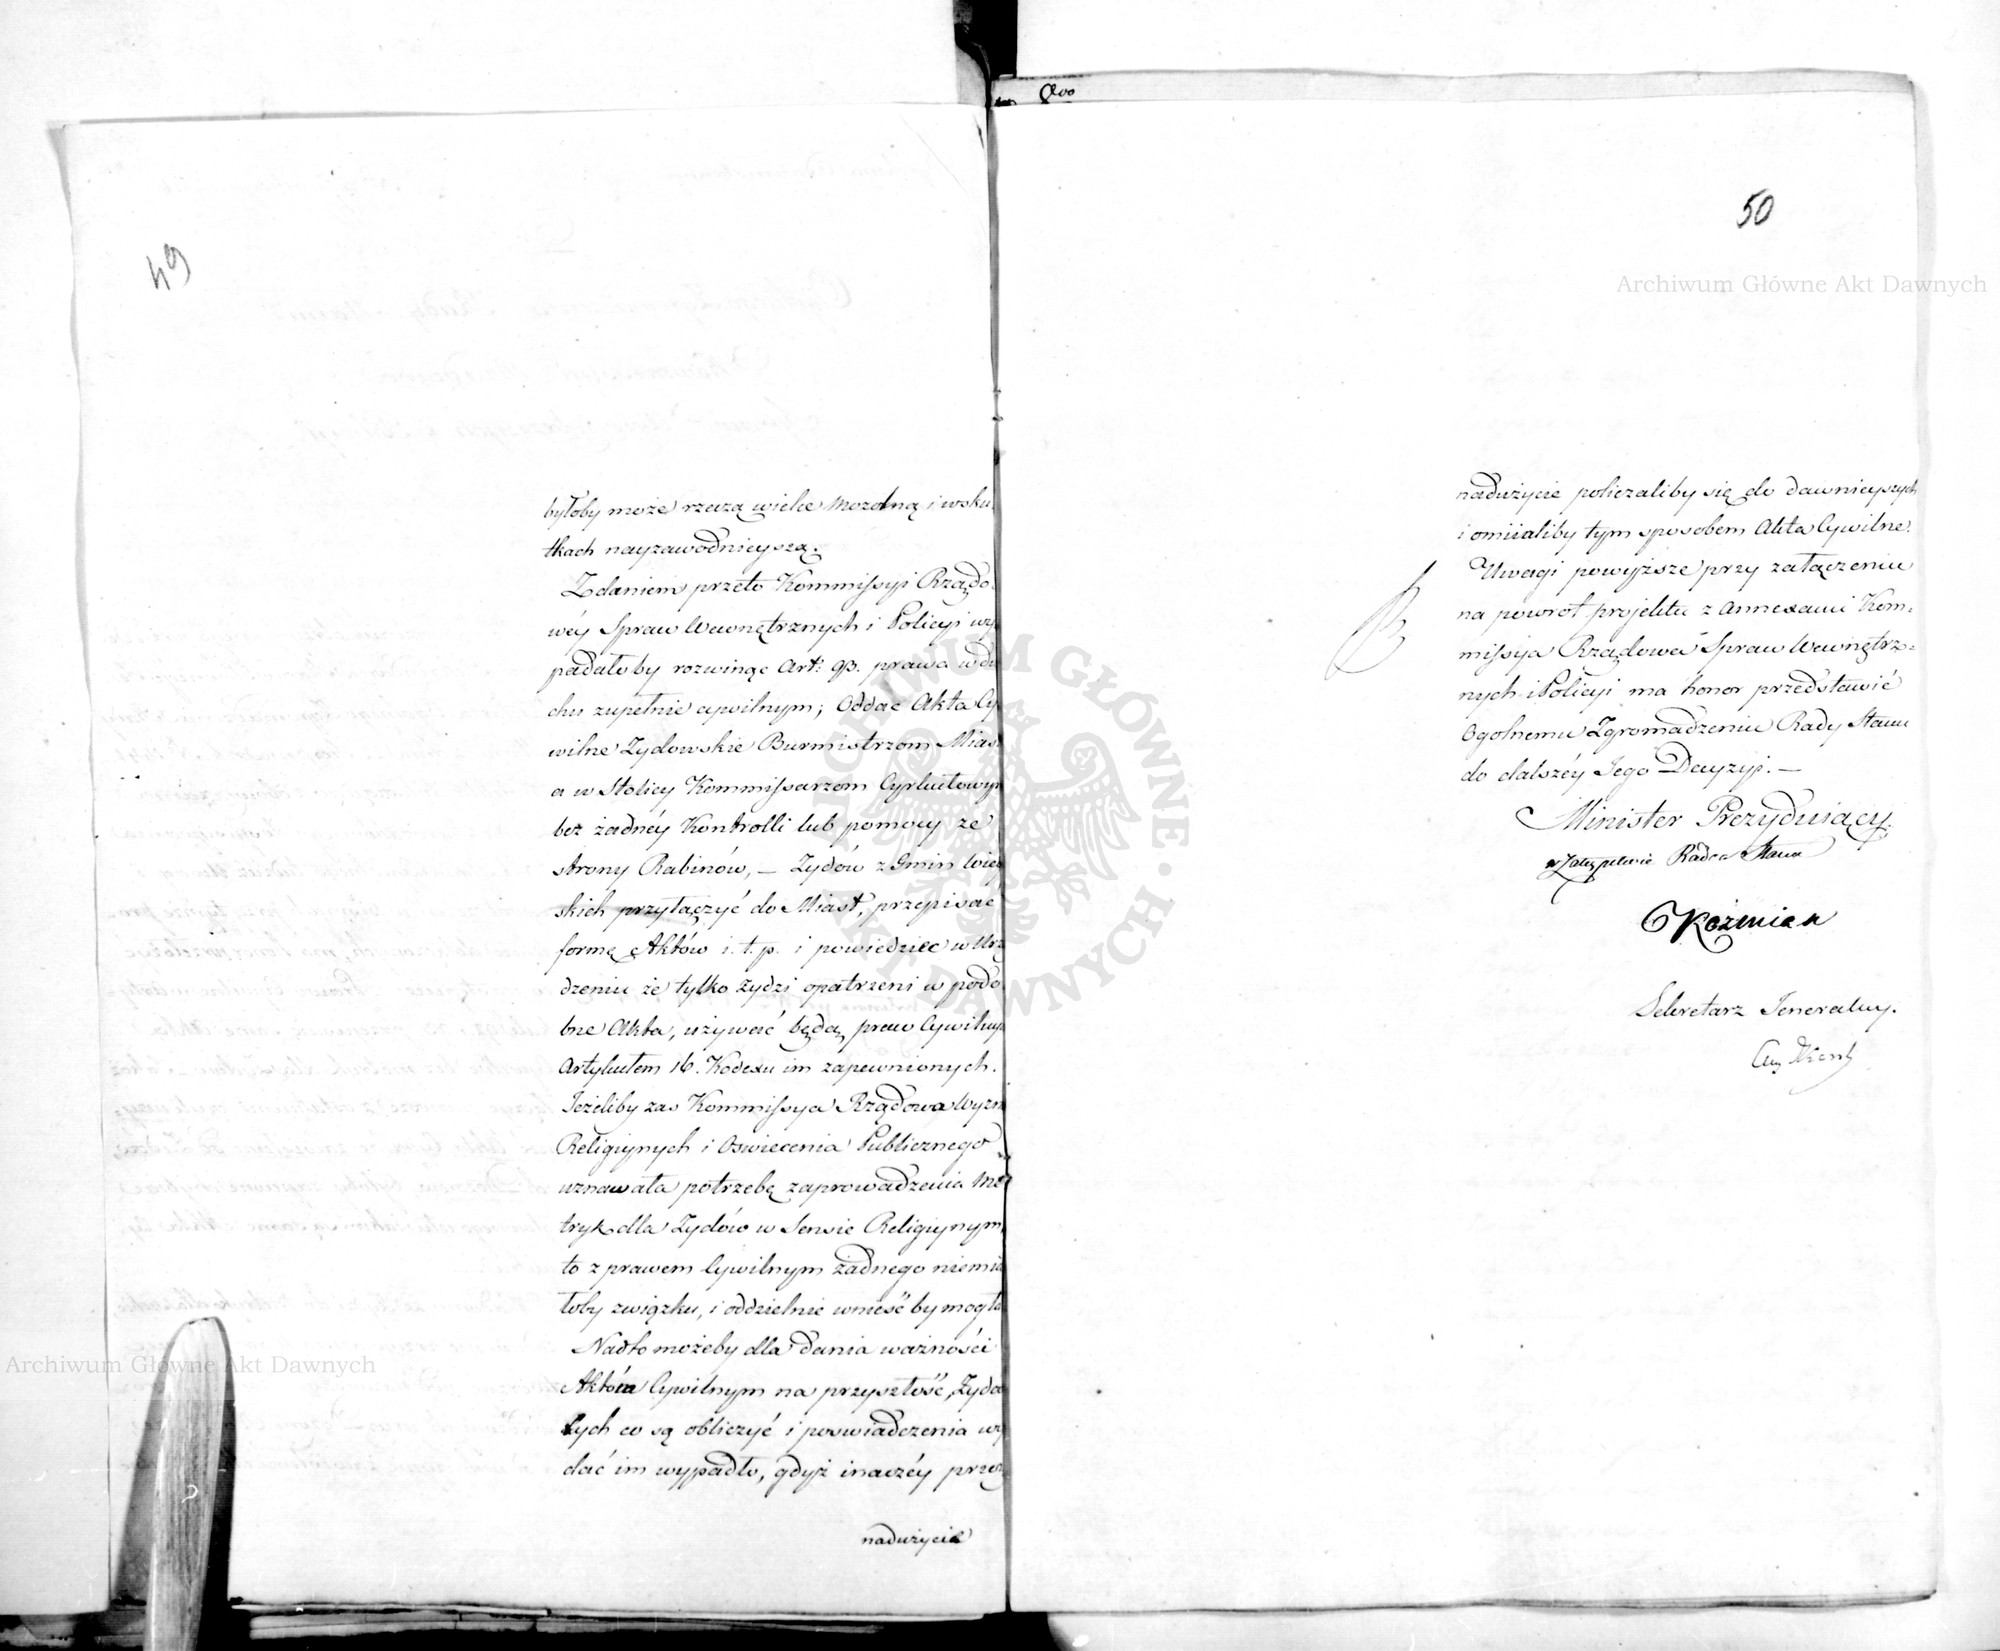 49
byłoby może rzeczą wielce mozolną i wsku
tkach nayzawodnieyszą.
Zdaniem przeto Kommissyi Rządo
wéy Spraw Wewnętrznych i Policyi wy
padałoby rozwinąć Art: 93. prawa w du
chu zupełnie cywilnym; Oddać Akta Cy
wilne Zydowskie Burmistrzom Miast
a w Stolicy Kommissarzom Cyrkułowym
bez żadnéy Kontrolli lub pomocy ze
strony Rabinów, — Zydów z Gmin Wiey
skich przyłączyć do Miast, przepisać
formę Aktów i. t. p. i powiedzieć w Urzą
dzeniu że tylko żydzi opatrzeni w podo
bne Akta, używać będą praw Cywilnych
Artykułem 16. Kodexu im zapewnionych.
Jeżeliby zas Kommissya Rządowa Wyzn
Religiynych i Oswiecenia Publicznego
uznawała potrzebę zaprowadzenia Me
tryk dla Zydów w Sensie Religiynym,
to z prawem Cywilnym żadnego niemia
łoby związku, i oddzielnie wnieść by mogła
Nadto możeby dla dania ważności
Aktóm Cywilnym na przyszłość, Zydów
tych co są obliczyć i poswiadczenia wy
dać im wypadło, gdyż inaczéy przez
nadużycie
50
nadużycie policzaliby się do dawnieyszych
i omiialiby tym sposobem Akta Cywilne.
Uwagi powyższe przy załączeniu
na powrót projektu z annexami Kom-
missya Rządowa Spraw Wewnętrz-
nych i Policyi ma honor przedstawić
Ogolnemu Zgromadzeniu Rady Stanu
do dalszéy Jego Decyzyi. —
Minister Prezyduiący.
w Zastępstwie Radca Stanu
Koźmian
Sekretarz Jeneralny.
Archiwum Główne Akt Dawnych
Archiwum Główne Akt Dawnych
ARCHIWUM GŁÓWNE • AKT DAWNYCH •